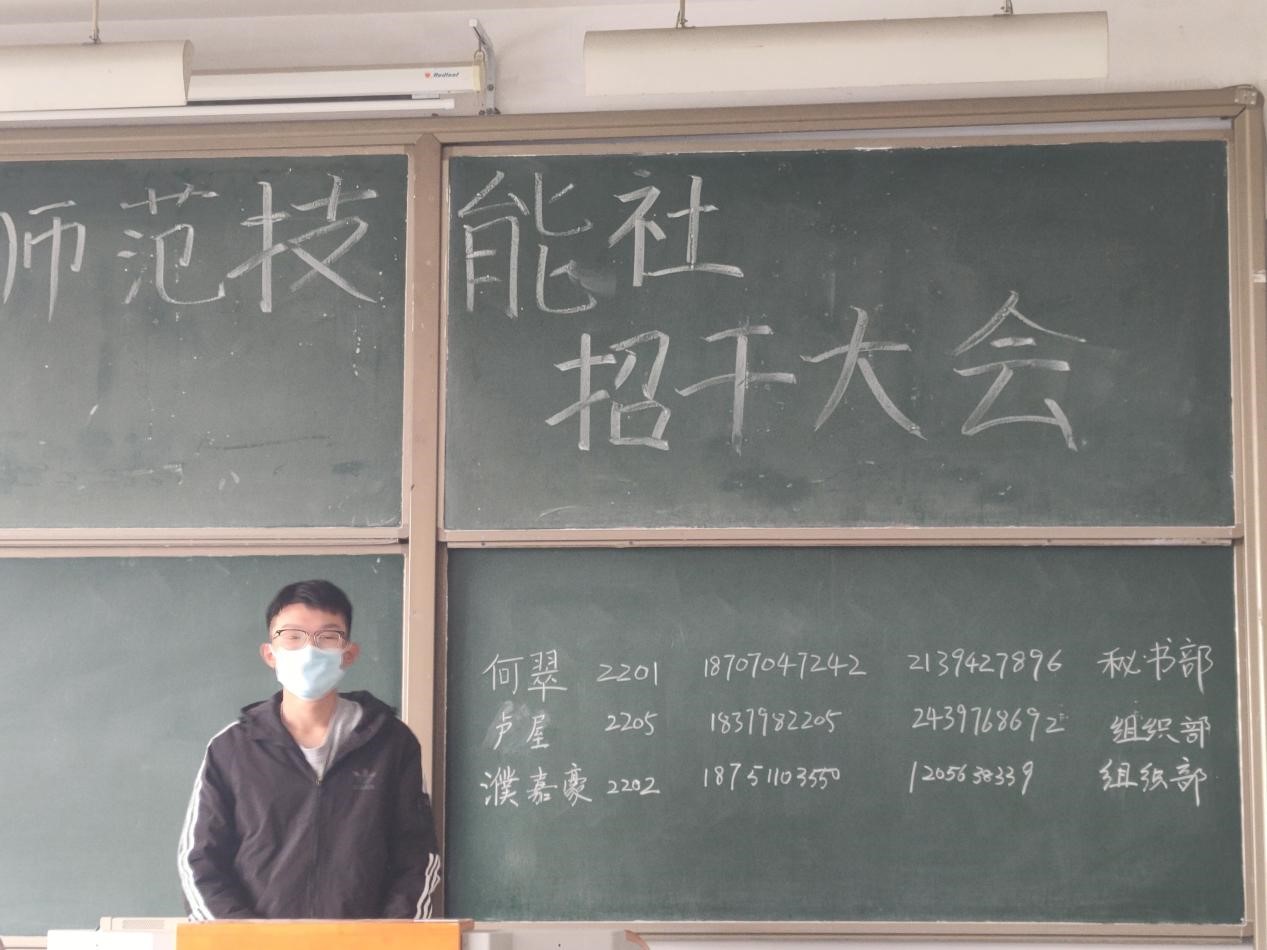 Redleaf
师范技能社
招干大会
何翠 2201 18707047242 2139427896 秘书部
卢屋 2205 1837982205 2439768692 组织部
濮嘉豪 2202 18751103550 1205638339 组织部